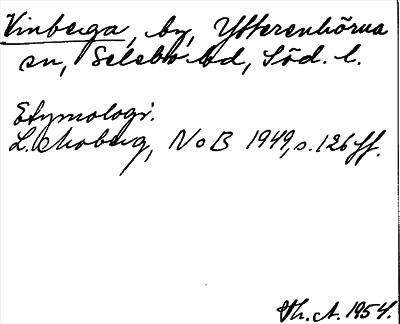 Vinberga, by, Ytterenhörna
sn, Selebo hd, Söd. l.
Etymologi.
L. Moberg, NoB 1949, s. 126 ff.
Th. A. 1954.